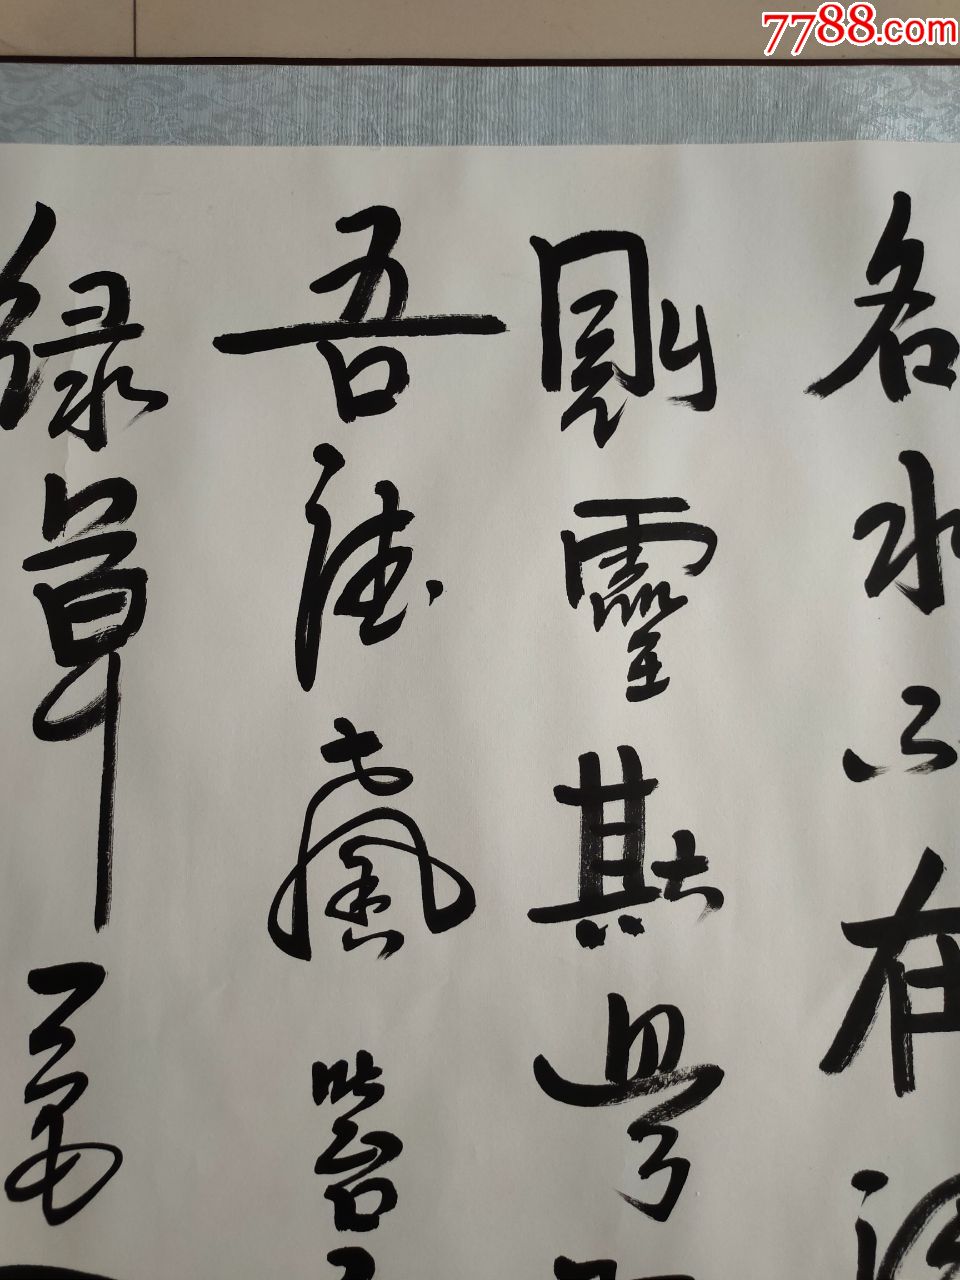 7788.com
名水不在深
則靈斯是
吾德馨苔
绿草色